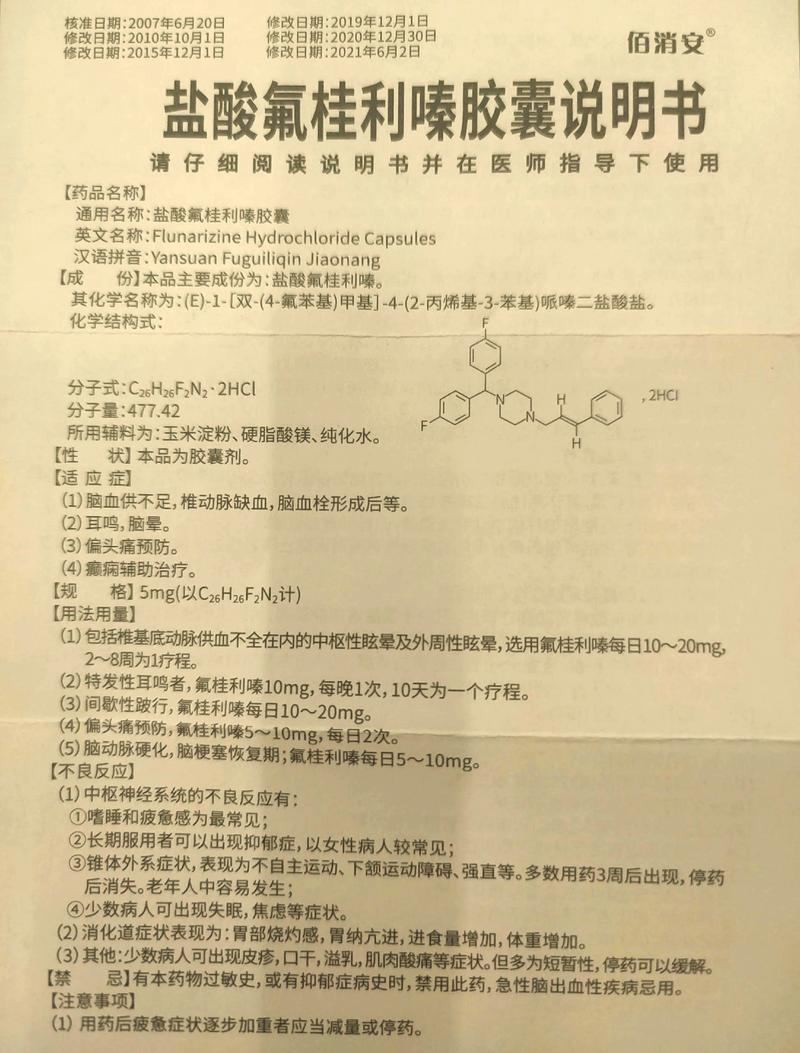 核准日期:2007年6月20日
修改日期:2010年10月1日
修改日期:2015年12月1日
修改日期:2019年12月1日
修改日期:2020年12月30日
修改日期:2021年6月2日
佰消安®
盐酸氟桂利嗪胶囊说明书
请仔细阅读说明书并在医师指导下使用
【药品名称】
通用名称:盐酸氟桂利嗪胶囊
英文名称:Flunarizine Hydrochloride Capsules
汉语拼音:Yansuan Fuguiliqin Jiaonang
【成 份】本品主要成份为:盐酸氟桂利嗪。
其化学名称为:(E)-1-[双-(4-氟苯基)甲基]-4-(2-丙烯基-3-苯基)哌嗪二盐酸盐。
化学结构式:
F
F
N
N
H
H
, 2HCl
分子式:C₂₆H₂₆F₂N₂·2HCl
分子量:477.42
所用辅料为:玉米淀粉、硬脂酸镁、纯化水。
【性 状】本品为胶囊剂。
【适 应 症】
(1)脑血供不足,椎动脉缺血,脑血栓形成后等。
(2)耳鸣,脑晕。
(3)偏头痛预防。
(4)癫痫辅助治疗。
【规 格】5mg(以C₂₆H₂₆F₂N₂计)
【用法用量】
(1)包括椎基底动脉供血不全在内的中枢性眩晕及外周性眩晕,选用氟桂利嗪每日10～20mg,
2～8周为1疗程。
(2)特发性耳鸣者,氟桂利嗪10mg,每晚1次,10天为一个疗程。
(3)间歇性跛行,氟桂利嗪每日10～20mg。
(4)偏头痛预防,氟桂利嗪5～10mg,每日2次。
(5)脑动脉硬化,脑梗塞恢复期;氟桂利嗪每日5～10mg。
【不良反应】
(1)中枢神经系统的不良反应有:
①嗜睡和疲惫感为最常见;
②长期服用者可以出现抑郁症,以女性病人较常见;
③锥体外系症状,表现为不自主运动、下颌运动障碍、强直等。多数用药3周后出现,停药
后消失。老年人中容易发生;
④少数病人可出现失眠,焦虑等症状。
(2)消化道症状表现为:胃部烧灼感,胃纳亢进,进食量增加,体重增加。
(3)其他:少数病人可出现皮疹,口干,溢乳,肌肉酸痛等症状。但多为短暂性,停药可以缓解。
【禁 忌】有本药物过敏史,或有抑郁症病史时,禁用此药,急性脑出血性疾病忌用。
【注意事项】
(1) 用药后疲惫症状逐步加重者应当减量或停药。